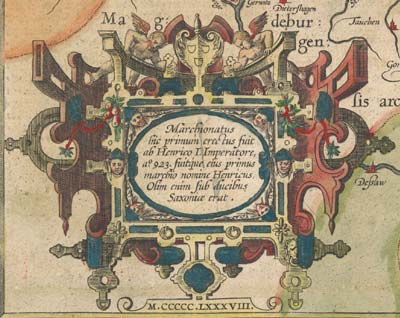 Gerwis
Dietershagen
Ma g: debur:
Tauchen
gen:
Gor
sis arc
Marchionatus
hic primum erectus fuit
ab Henrico I. Imperatore,
aº 923. fuitque eius primus
marchio nomine Henricus.
Olim enim sub ducibus
Saxoniæ erat.
Dessaw
M.CCCCC.LXXXVIII.